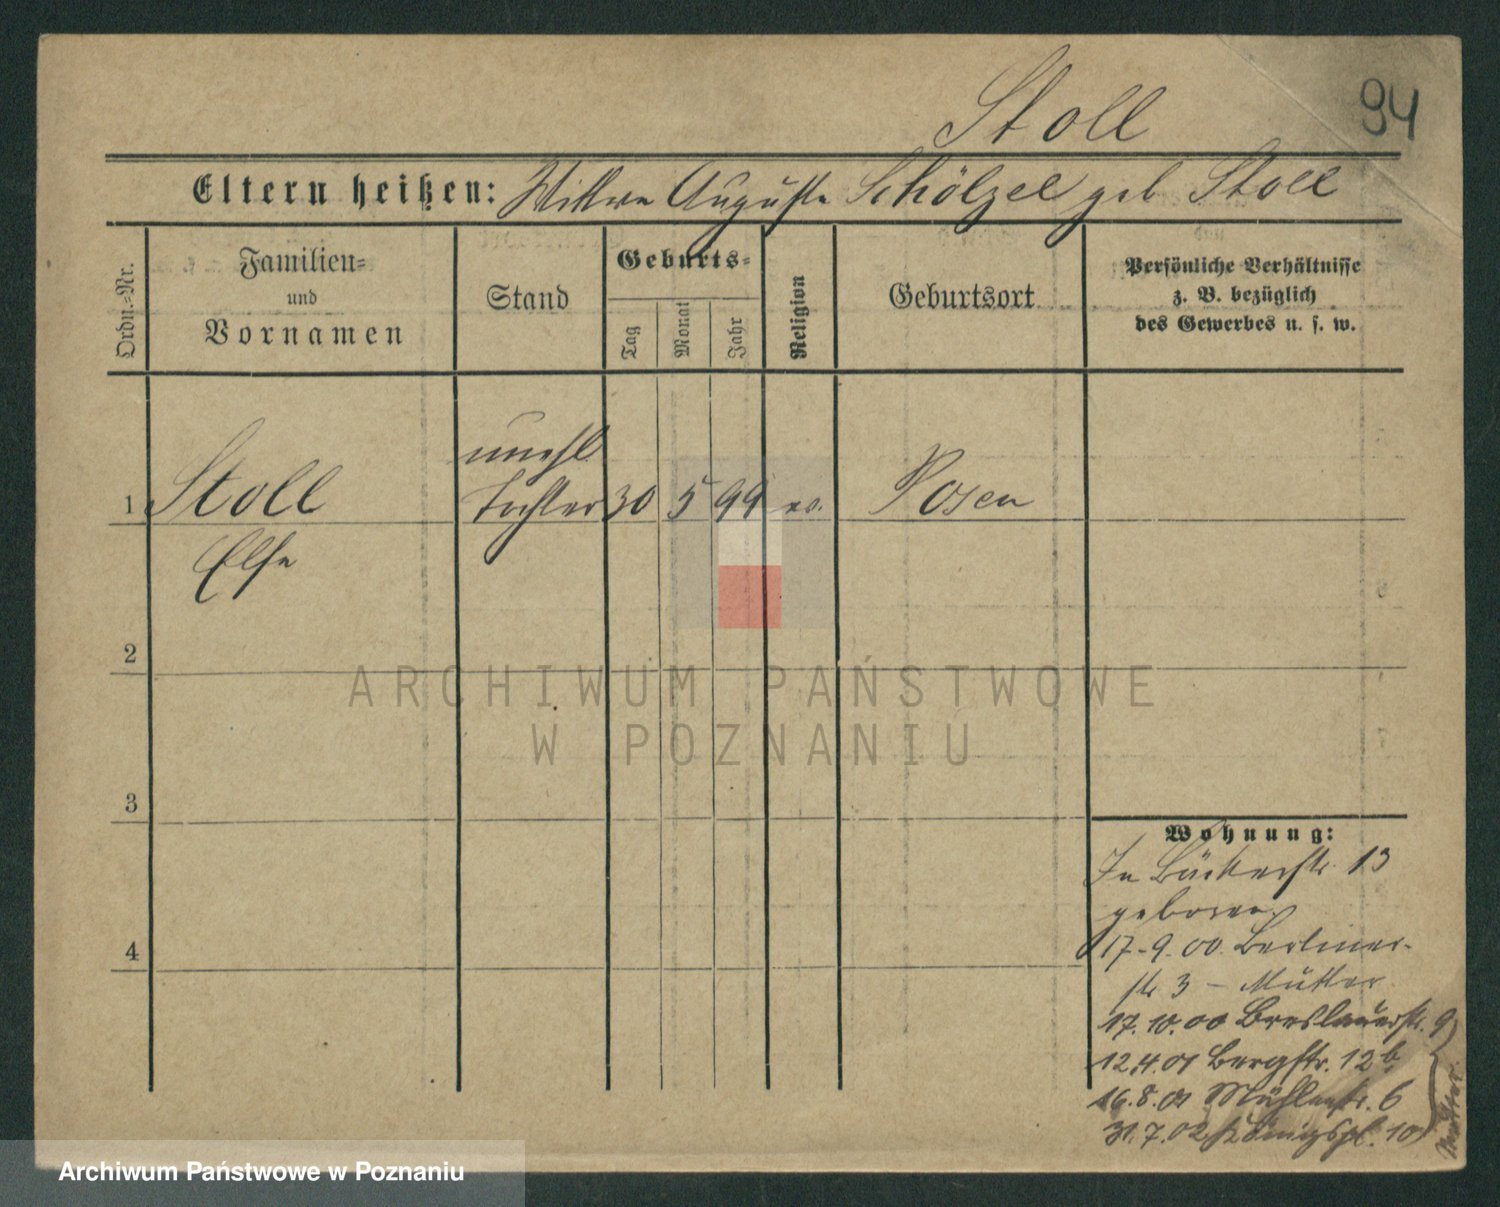 94
Stoll
Eltern heißen: Wittwe Auguste Schölzel geb Stoll
Ordn.=Nr.
Familien=
und
Vornamen
Stand
Geburts=
Tag
Monat
Jahr
Religion
Geburtsort
Persönliche Verhältnisse
z. B. bezüglich
des Gewerbes u. s. w.
unehl
1 Stoll Tochter 30 5 99 ev. Posen
Else
2
3
4
ARCHIWUM PAŃSTWOWE
W POZNANIU
Wohnung:
In Bäckerstr. 13
geboren
17-9.00. Berliner-
str 3 – Mutter
17.10.00 Breslauerstr. 9
12.4.01 Bergstr. 12b
16.8.01 Mühlenstr. 6
31.7.02 Königspl. 10
Mutter
Archiwum Państwowe w Poznaniu